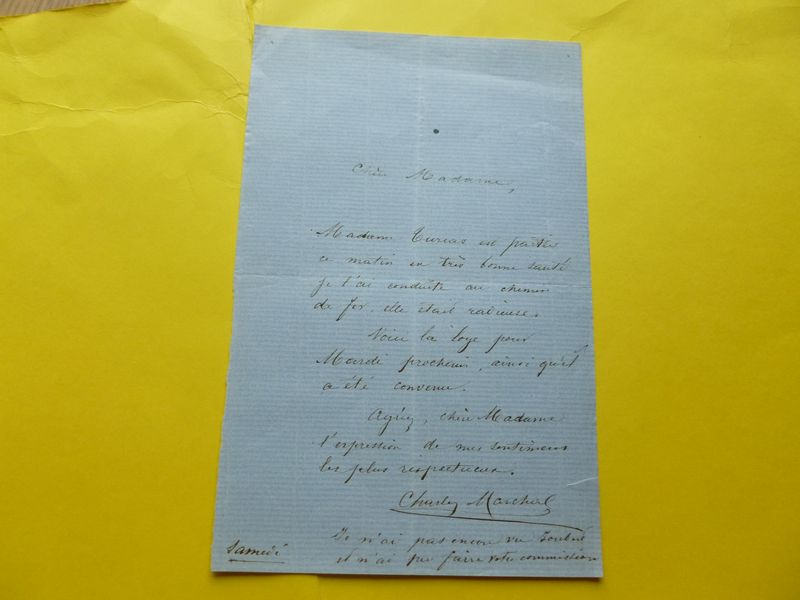 Chère Madame,
Madame est partie
ce matin en très bonne santé
je l'ai conduite au chemin
de fer, elle était radieuse.
Voici la loge pour
Mardi prochain, ainsi qu'il
a été convenu.
Agréez, chère Madame
l'expression de mes sentimens
les plus respectueux.
Charles Marchal
Je n'ai pas encore vu
et n'ai pu faire votre commission
Samedi